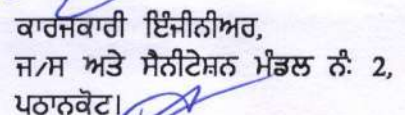 ਕਾਰਜਕਾਰੀ ਇੰਜੀਨੀਅਰ,
ਜ/ਸ ਅਤੇ ਸੈਨੀਟੇਸ਼ਨ ਮੰਡਲ ਨੰ: 2,
ਪਠਾਨਕੋਟ।